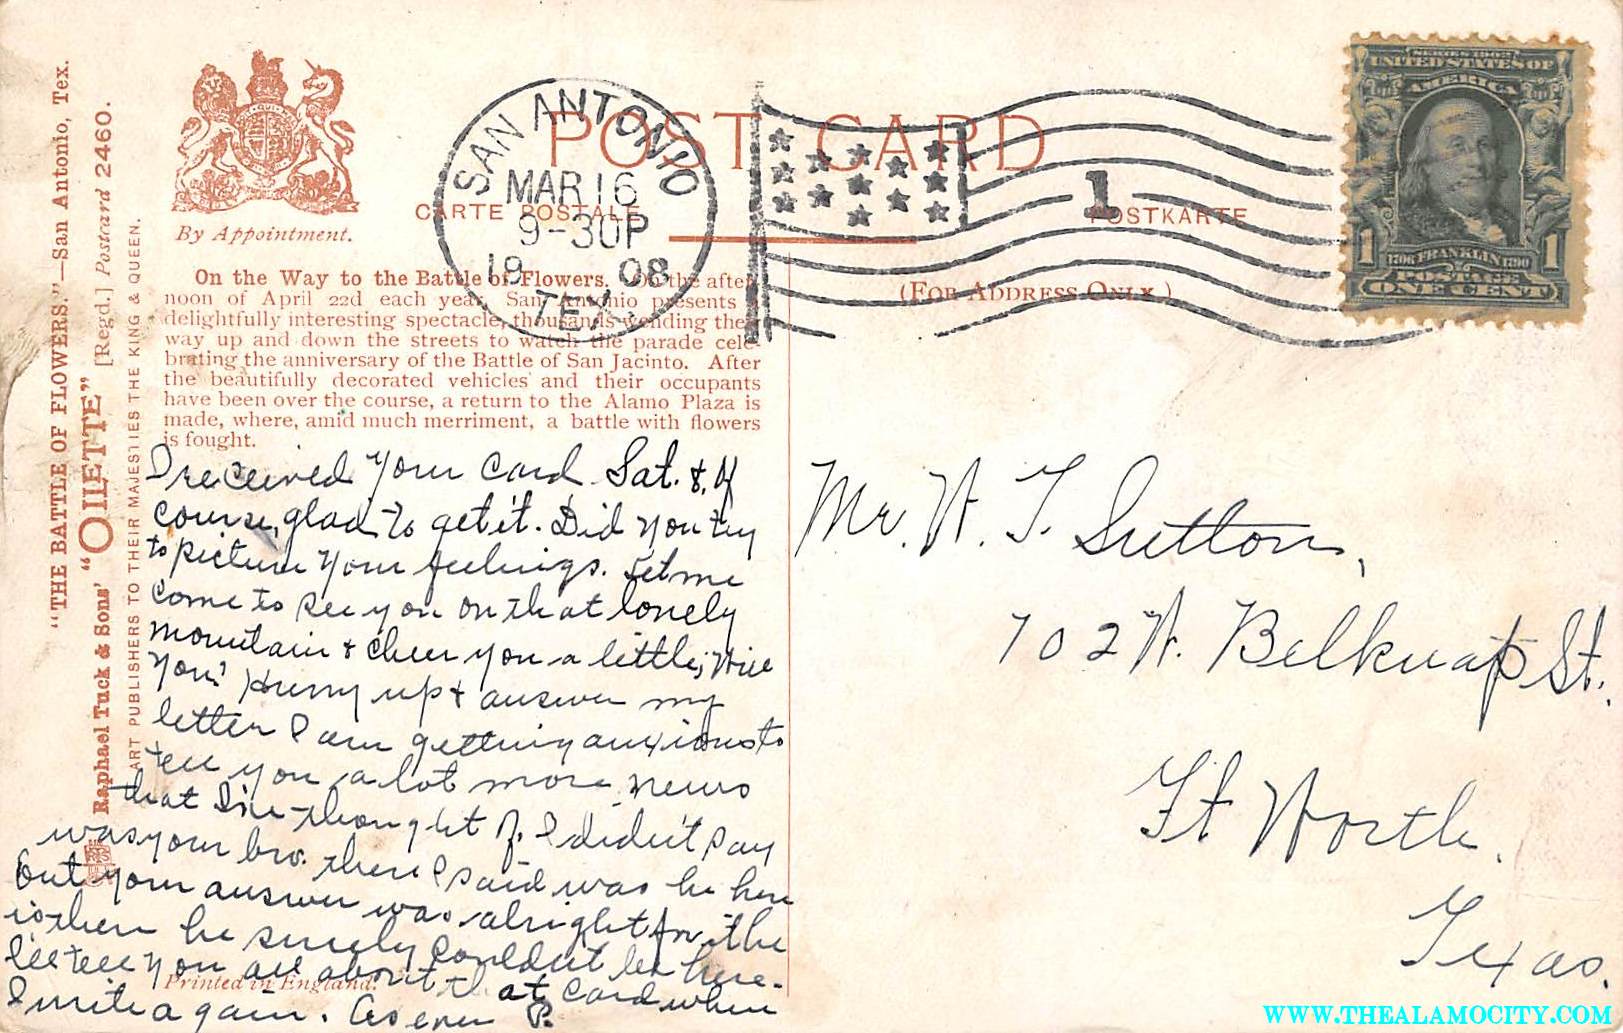 "THE BATTLE OF FLOWERS."—San Antonio, Tex.
Raphael Tuck & Sons' "OILETTE" [Regd.] Postcard 2460.
ART PUBLISHERS TO THEIR MAJESTIES THE KING & QUEEN.
By Appointment.
POST CARD
CARTE POSTALE
POSTKARTE
(FOR ADDRESS ONLY.)
SAN ANTONIO
MAR 16
9-30P
1908
TEX.
1
SERIES 1902
UNITED STATES OF
AMERICA
1706 FRANKLIN 1790
POSTAGE
1 ONE CENT 1
On the Way to the Battle of Flowers. On the after-
noon of April 22d each year, San Antonio presents a
delightfully interesting spectacle, thousands wending their
way up and down the streets to watch the parade cele-
brating the anniversary of the Battle of San Jacinto. After
the beautifully decorated vehicles and their occupants
have been over the course, a return to the Alamo Plaza is
made, where, amid much merriment, a battle with flowers
is fought.
I received your card Sat. &, of
course, glad to get it. Did you try
to picture your feelings. Let me
come to see you on that lonely
mountain & cheer you a little, Will
you? Hurry up & answer my
letter I am getting anxious to
tell you a lot more news
that I've thought of. I didn't say
was your bro. there I said was he here
but your answer was alright for the
is there he surely couldn't be here.
I'll tell you all about that card when
I write again. As ever P.
Printed in England.
Mr. W. T. Sutton,
702 W. Belknap St.
Ft Worth.
Texas.
WWW.THEALAMOCITY.COM